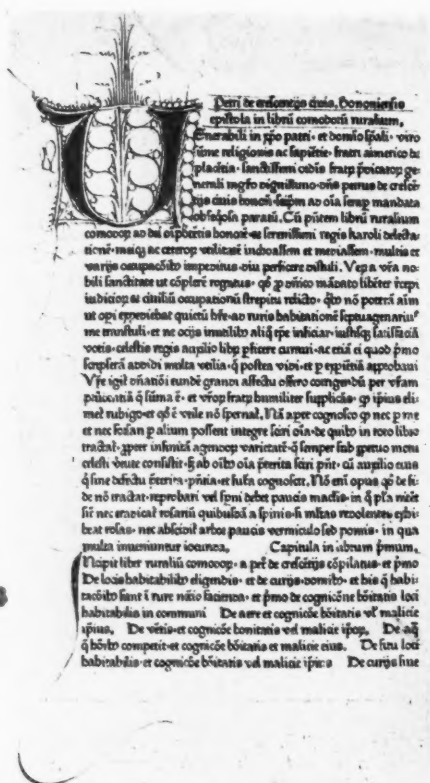 Petri de crescentijs ciuis. Bononiensis
epistola in librū comodorū ruralium.
Venerabili in xp̄o patri · et domīo sp̄ali · viro
sūme religionis ac sapiētie · fratri aimerico de
placētia · sanctissimi ordīs fratꝝ p̄dicatoꝝ ge-
nerali mgr̄o dignissimo · petrus de crescē-
tijs ciuis bonoñ · semp̄ ad oīa mandata
obseqiosa paratū. Cū librū ruralium
comodoꝝ ad dei oīpotētis honorē · et serenissimi regis karoli delecta-
tionē · ac ceteroꝝ vtilitatē inchoassem et mediassem · multis et
varijs occupacōibꝰ impeditus · diu perficere distuli. Veꝝ a vr̄a no-
bili sanctitate vt cōplerē rogatus · mādato libēter recepi
iudicioꝝ et ciuiliū occupationū strepitu relicto · nō poterā
vt opꝰ expediebat quietū hr̄e · ad ruris habitationē septuagenariꝰ
me transtuli · et ne ocijs inutilibꝰ
votis · celestis regis auxilio libꝝ p̄ficere curaui · ac etiā ei quod p̄mo
scripserā addidi multa vtilia · q̄ postea vidi · et p̄ expiētiā approbaui
Vr̄e igit̄ eundē grandi affectu offero corrigendū per vr̄am
q̄ sūma ē · et vr̄oꝝ fratꝝ humiliter supplicās · qꝫ ipius
rubigo · et qd̄ ē vtile nō spernat. Nā aꝑte cognosco qꝫ nec p̄ me
et nec forsan p̄ alium possent integre sciri oīa · de quibꝰ in toto libro
tractat̄ · ꝓpter infinitā varietatē · q̄ semper sub
celesti consistit ·
q̄ sine defectu p̄terita · p̄ntia · et futa cognoscit. Nō em̄ opus qd̄ de
nō tractat · reprobari vel sp̄ni debet paucis maclis · in
sic̄ nec eradicat̄ rosariū quibusdā a spinis ·
rosas · nec abscindit̄ arbos paucis vermiculosꝰ pomis · in qua
multa inueniuntur iocunda. Capitula in librum p̄mum.
Incipit liber ruraliū comodoꝝ · a pet̄ de crescētijs cōpilatus · et p̄mo
De locis habitabilibꝰ eligendis · et de curijs · domibꝰ · et his q̄ habi-
tacōibꝰ sunt ī rure facienda · et p̄mo de cognicōne bōitatis loci
habitabilis in communi De aere et cognicōe bōitatis vel malicie
ipīus. De vētis · et cognicōe bonitatis vel malicie ip̄oꝝ. De aq̄
competit · et cognicōe bōitatis et malicie eius. De situ loci
habitabilis · et cognicōe bōitatis vel malicie ipīus De curijs siue